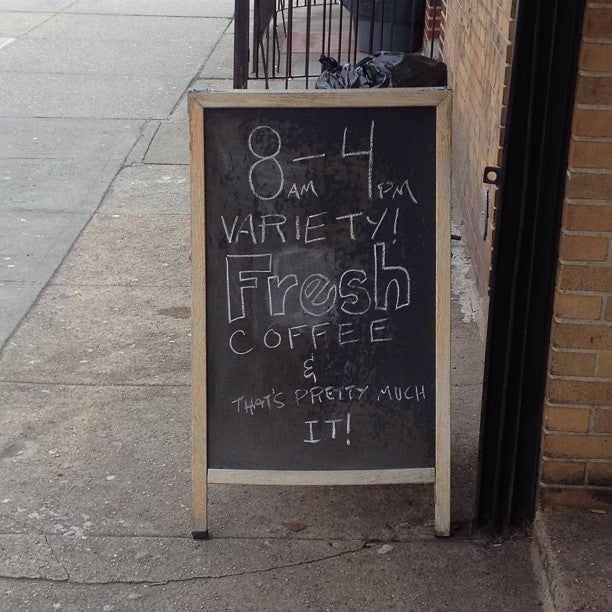 8AM - 4PM
VARIETY!
Fresh
COFFEE
&
THAT'S PRETTY MUCH
IT!